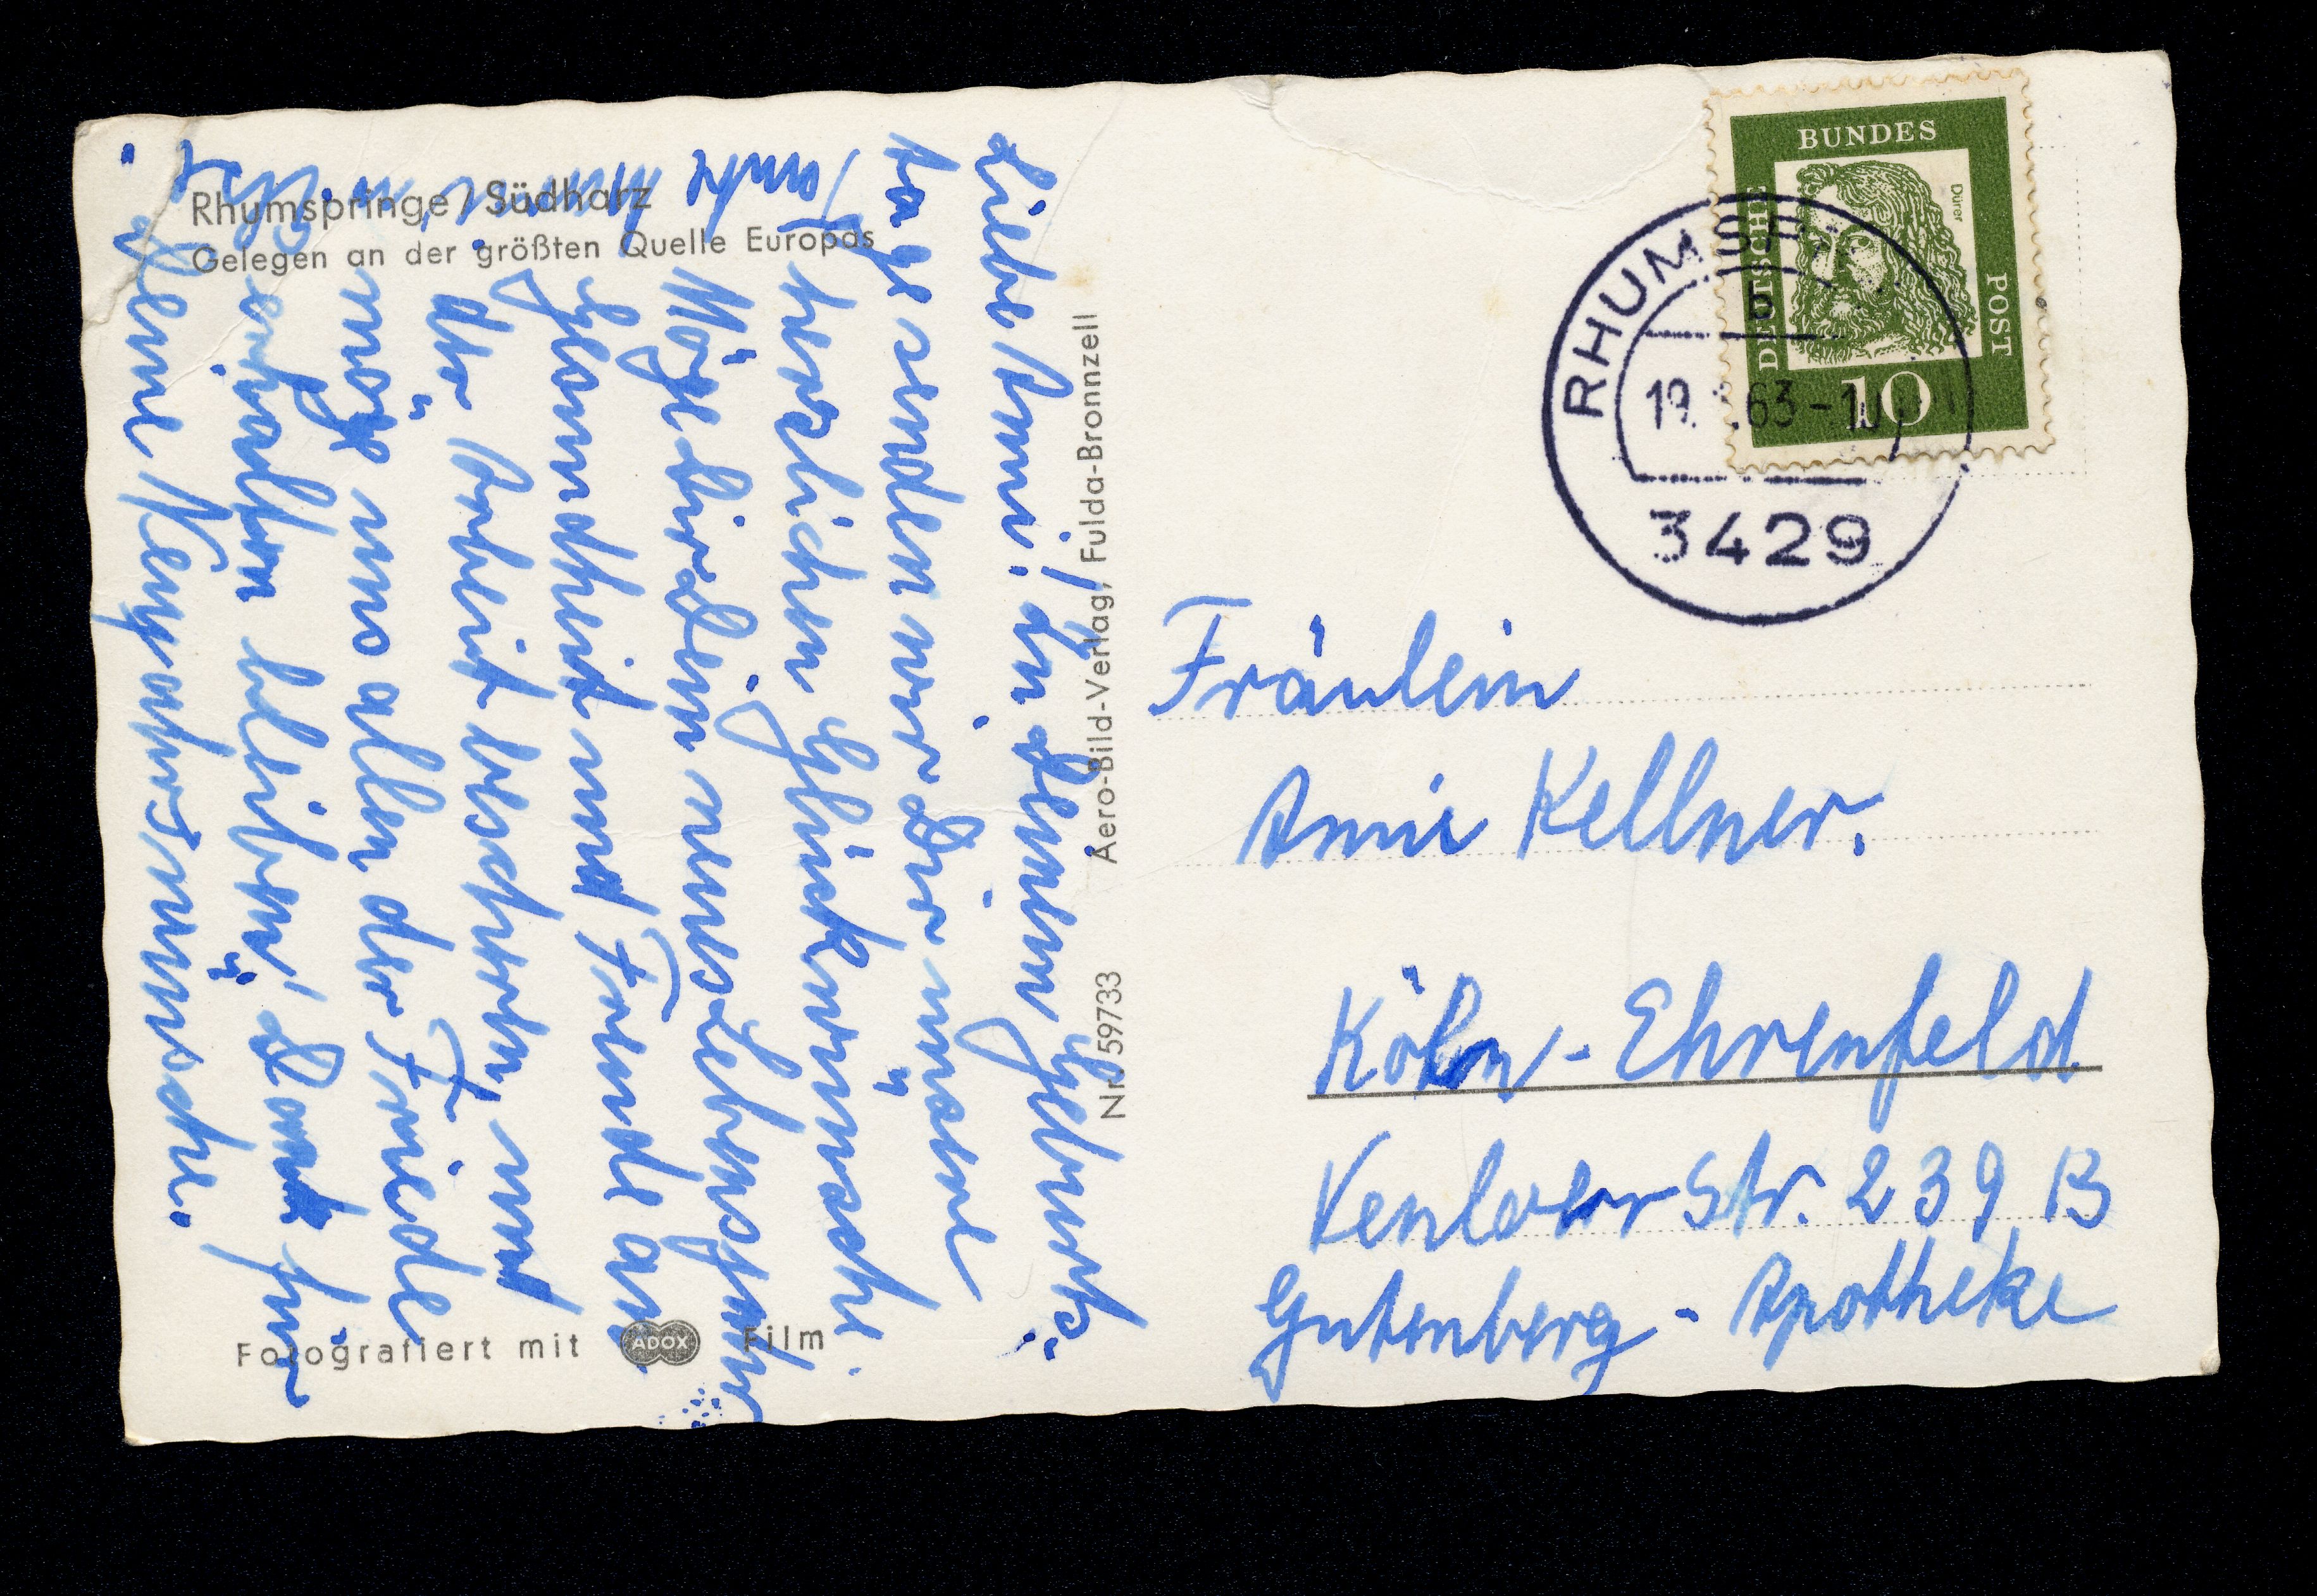 Rhumspringe / Südharz
Gelegen an der größten Quelle Europas
Liebe Anni! Zu Deinem Geburts-
tage senden wir Dir unsere
herzlichen Glückwünsche.
Möge Dir Dein neues Lebensjahr
Gesundheit und Freude an
der Arbeit bescheren und
möge uns allen der Friede
erhalten bleiben! Dank für
Deine Neujahrswünsche.
Tante
Aero-Bild-Verlag, Fulda-Bronnzell
Nr. 59733
Fotografiert mit ADOX Film
DEUTSCHE BUNDES POST
Dürer
10
RHUMSPR
b
19. .63-10
3429
Fräulein
Anni Kellner.
Köln-Ehrenfeld
Venloer Str. 239 B
Gutenberg-Apotheke